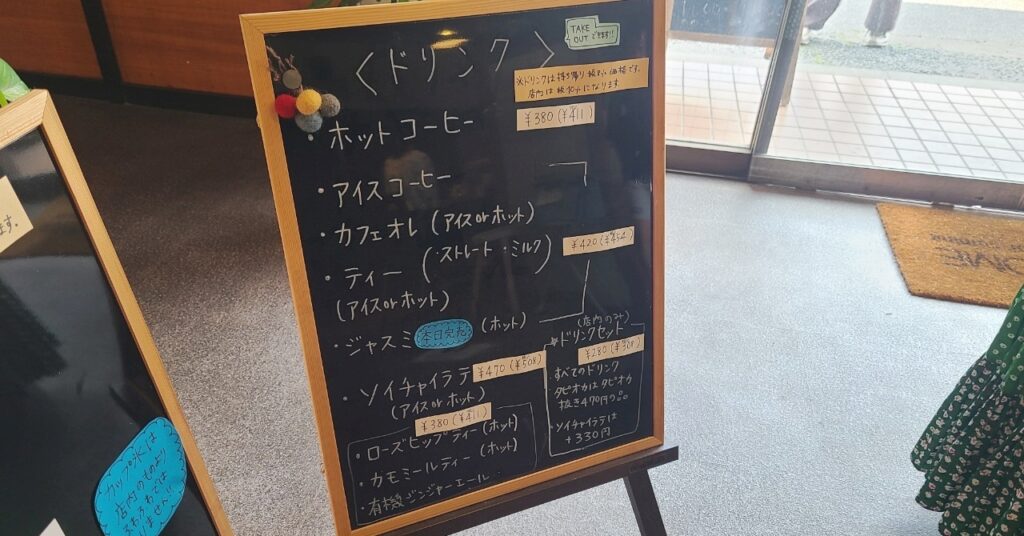 TAKE
OUTできます!!
〈ドリンク〉
※ドリンクは持ち帰り税8%価格です。
店内は税10%になります
・ホットコーヒー
¥380(¥411)
・アイスコーヒー
・カフェオレ(アイスorホット)
・ティー(・ストレート・ミルク)
¥420(¥454)
(アイスorホット)
・ジャスミ
本日完売
(ホット)
・ソイチャイラテ
¥470(¥508)
(アイスorホット)
¥380(¥411)
・ローズヒップティー(ホット)
・カモミールティー(ホット)
・有機ジンジャーエール
(店内のみ)
★ドリンクセット
¥280(¥308)
・すべてのドリンク
タピオカはタピオカ
抜き470円の
・ソイチャイラテは
+330円
ます。
カップ氷は
店内のものより
HOME